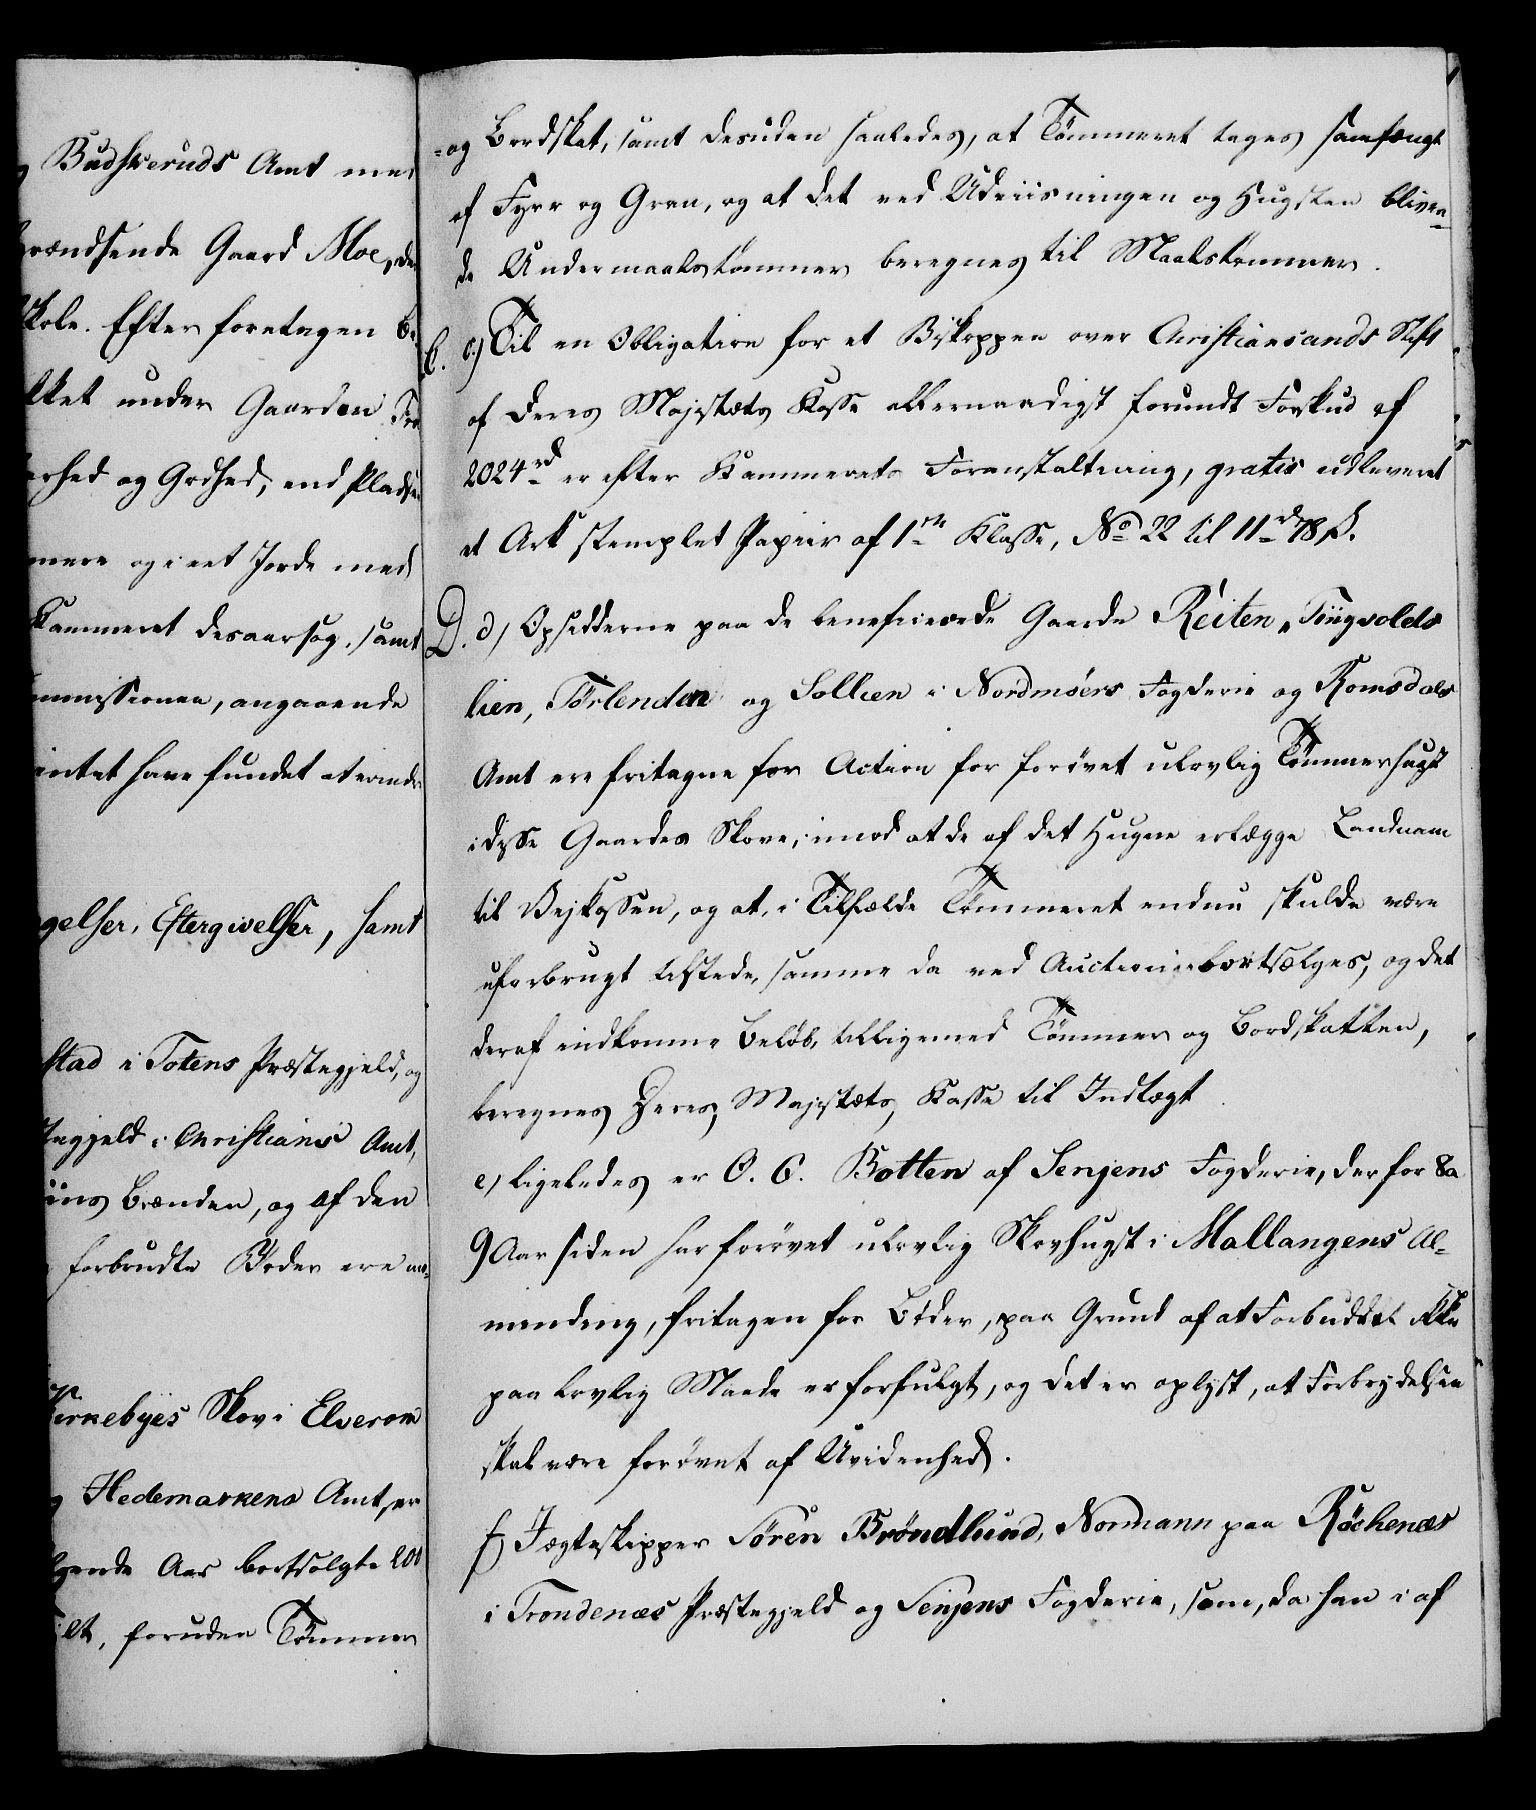 Budskeruds Amt med
grændsende Gaard Moe, der
Skole. Efter foretagen be
lket under Gaarden
erhed og Godhed, end Pladsen
mere og i eet Jorde med
Kammeret desaarsag, samt
mmissionen, angaaende
intet have fundet at erindre
gelser, Eftergivelser, samt
stad i Totens Præstegjeld, og
stegjeld i Christians Amt,
iins Brænden, og af den
forbrudte Bøder ere
Kirkebyes Skov i Elverom
Hedemarkens Amt, er
gende Aar bortsolgte 200
ilt, foruden Tømmer
- og Bordskat, samt desuden saaledes, at Tømmeret tages samfængt
af Fyrr og Gran, og at det ved Udviisningen og Hugsten bliven-
de Undermaalstømmer beregnes til Maalstømmer.
C. c) Til en Obligation for et Biskoppen over Christiansands Stift
af Deres Majestæts Kasse allernaadigst forundt Forskud af
2024 rd er efter Kammerets Foranstaltning, gratis udleveret
et Ark stemplet Papiir af 1ste Klasse, No 22 til 11 rd 78 ß.
D. d) Opsidderne paa de beneficerede Gaarde Reiten, Tiingvolds
lien, Torlenden og Sollien i Nordmøers Fogderie og Romsdals
Amt ere fritagne for Action for forøvet ulovlig Tømmerhugst
i disse Gaardes Skove, imod at de af det Hugne erlægge Landnam
til Vejkassen, og at, i Tilfælde Tømmeret endnu skulde være
uforbrugt tilstede, samme da ved Auction bortsælges, og det
deraf indkomne Beløb, tilligemed Tømmer og Bordskatten,
beregnes Deres Majestæts Kasse til Indtægt.
e) ligeledes er O. C. Botten af Senjens Fogderie, der for 8 a
9 Aar siden har forøvet ulovlig Skovhugst i Mallangens Al-
minding, fritagen for Bøder, paa Grund af at Forbuddet ikke
paa lovlig Maade er forfulgt, og det er oplyst, at Forbrydelsen
skal være forøvet af Uvidenhed.
f) Jægteskipper Søren Brøndlund, Normann paa Røchenæs
i Trondenæs Præstegjeld og Senjens Fogderie, som, da han i af